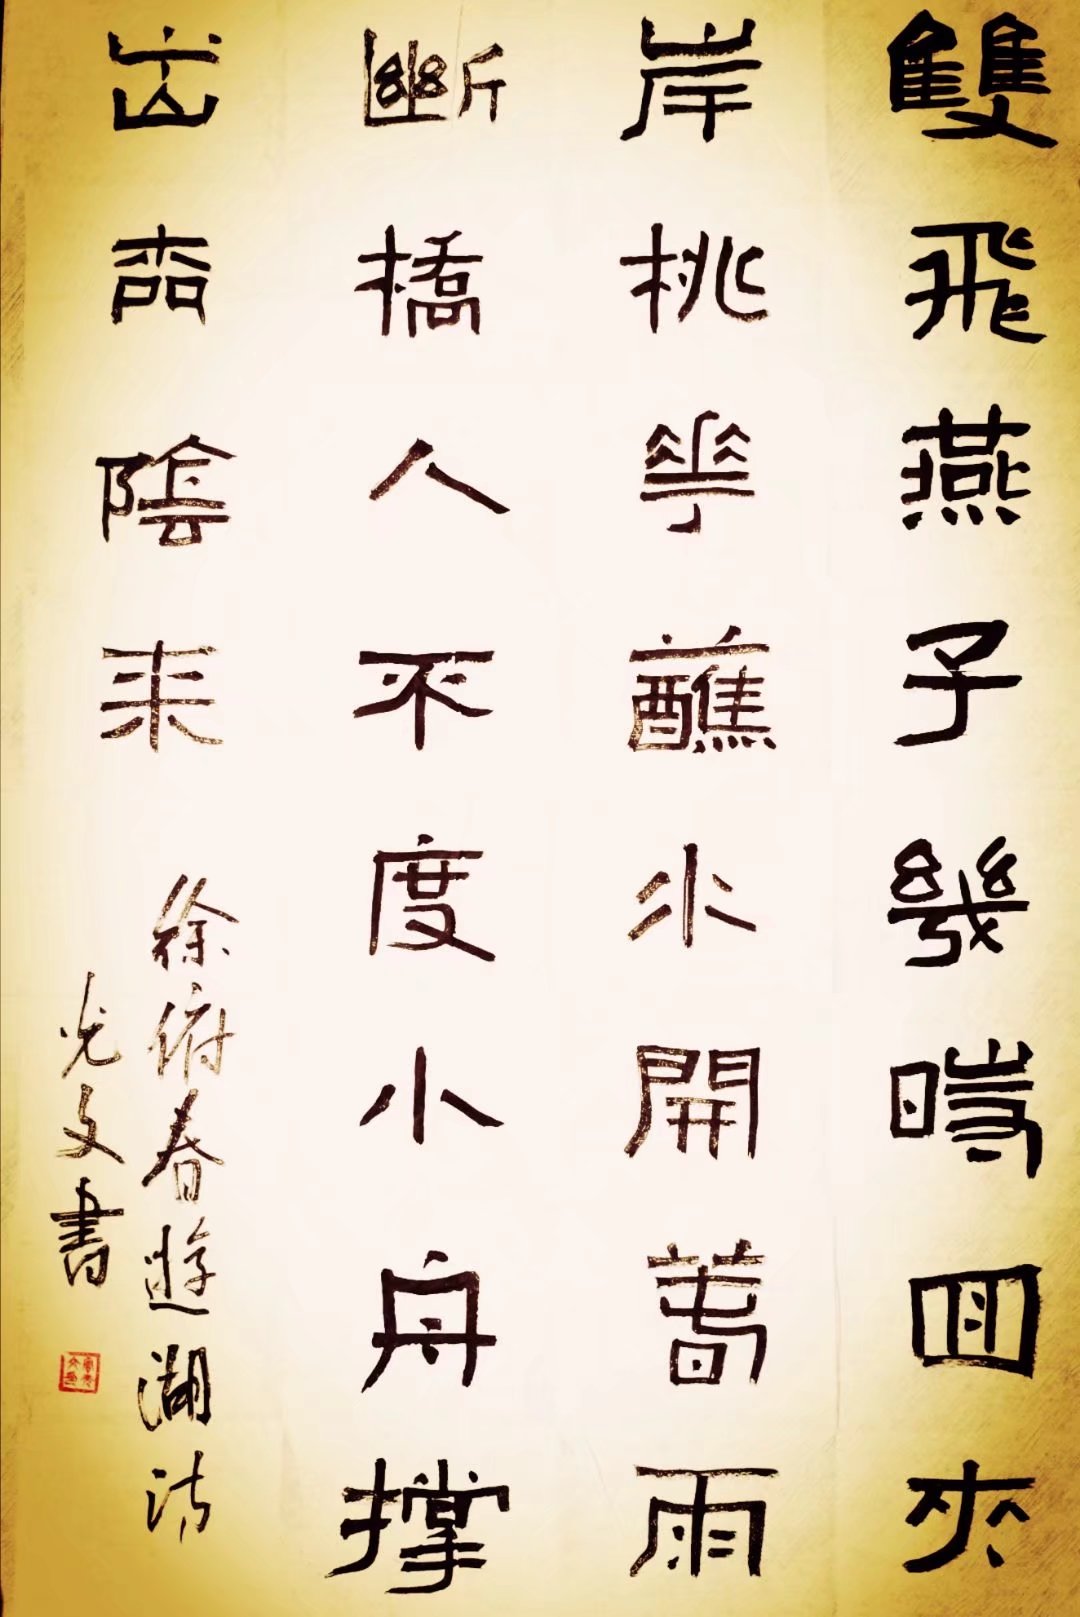 雙飛燕子幾時回夾
岸桃華蘸水開萅雨
斷橋人不度小舟撐
出柳陰來
徐俯春遊湖詩
光文書